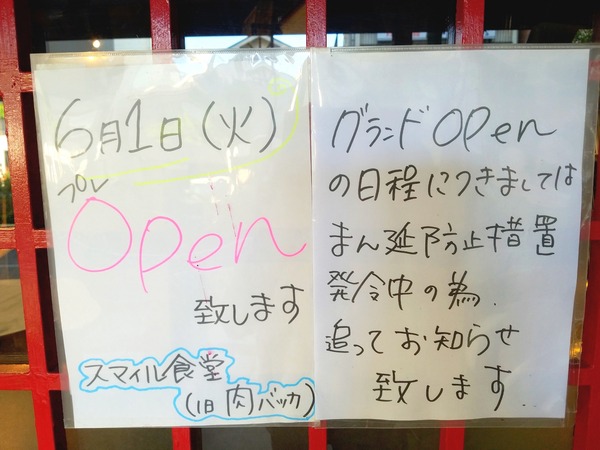 6月1日(火)
プレ
Open
致します
スマイル食堂
(旧 肉バッカ)
グランドOPen
の日程につきましては
まん延防止措置
発令中の為.
追ってお知らせ
致します